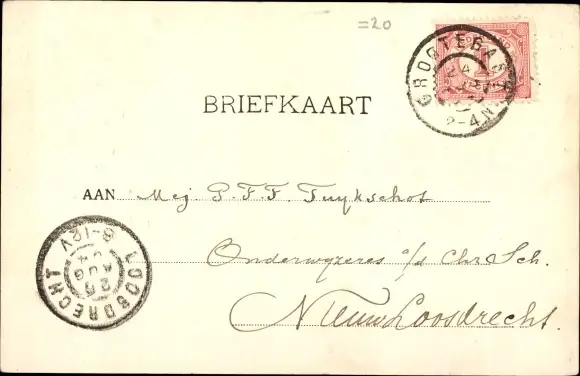 =20
GROOTEGAST
2-4N
BRIEFKAART
AAN Mej. P. F. F. Tuykschot
Onderwyzeres a/d Chr. Sch.
Nieuw Loosdrecht.
LOOSDRECHT
8-12V
25
AUG
04